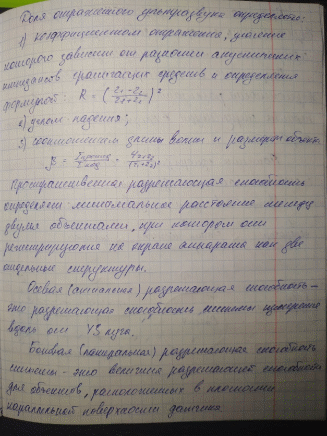 Доля отраженного ультразвука определяется:
1) коэффициентом отражения, значение
которого зависит от разности акустических
импедансов граничащих средств и определяется
формулой: R = (Z1-Z2 / Z1+Z2)²
2) углом падения;
3) соотношением длины волны и размеров объекта.
Пространственная разрешающая способность
определяет минимальное расстояние между
двумя объектами, при котором они
регистрируются на экране аппарата как две
отдельные структуры.
Осевая (аксиальная) разрешающая способность -
это разрешающая способность системы
вдоль оси УЗ луча.
Боковая (латеральная) разрешающая способность
системы - это величина разрешающей способности
для объектов, расположенных в плоскости
параллельной поверхности датчика.